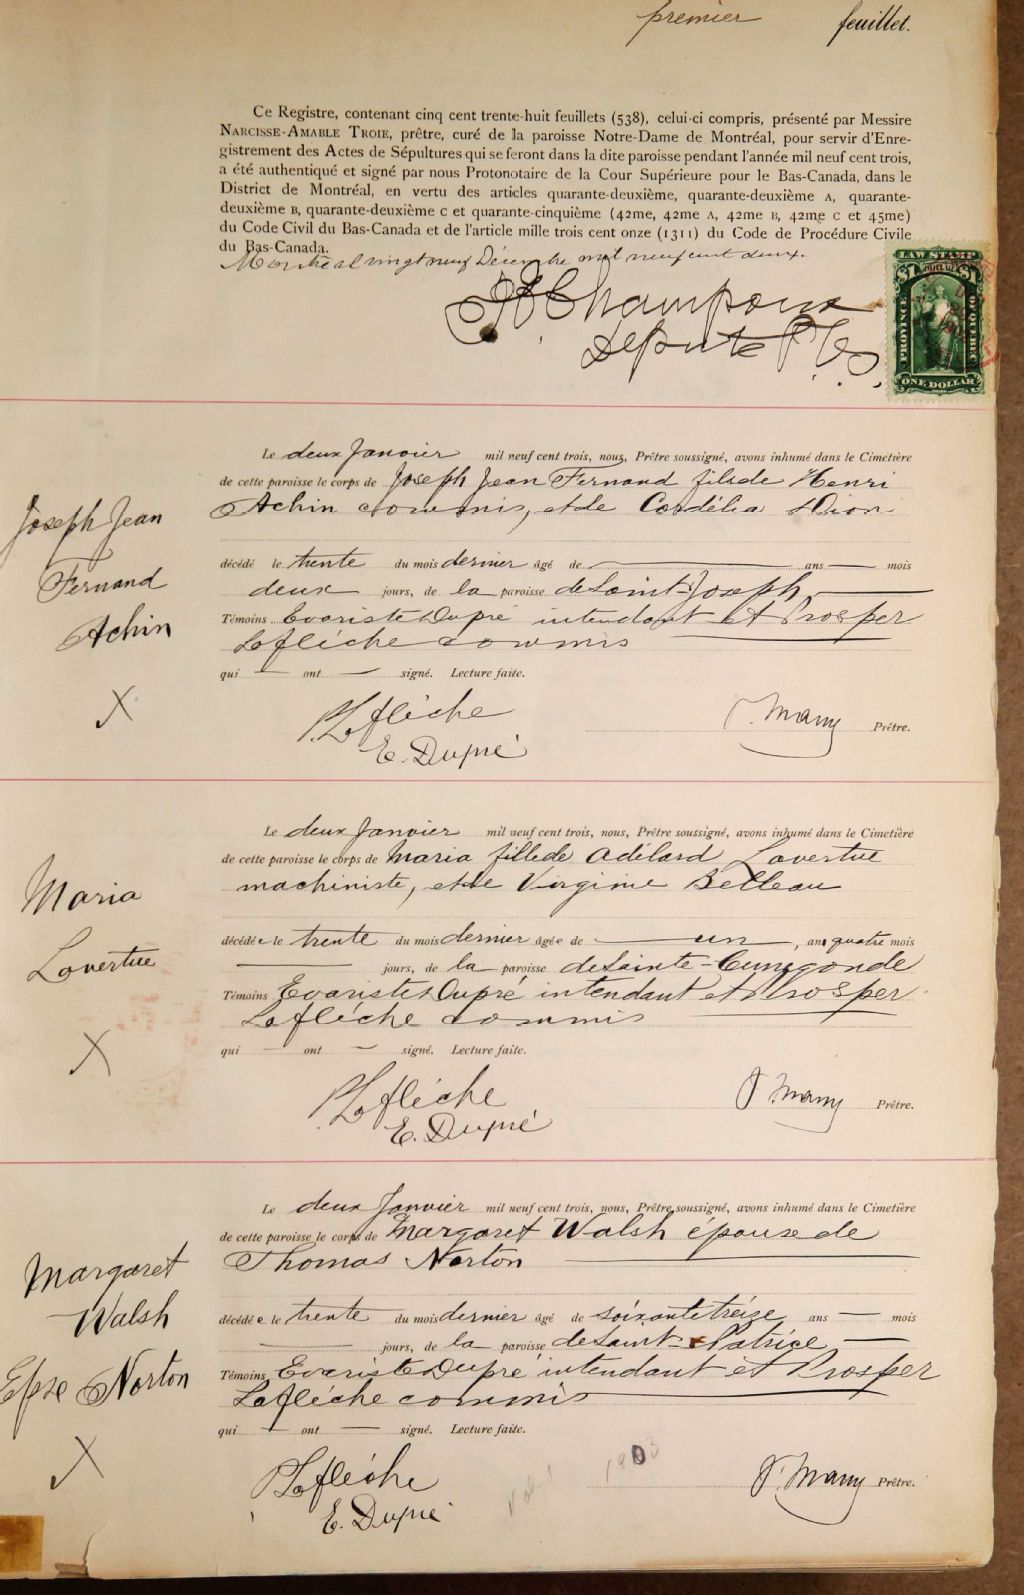 premier feuillet.
Ce Registre, contenant cinq cent trente-huit feuillets (538), celui-ci compris, présenté par Messire
NARCISSE-AMABLE TROIE, prêtre, curé de la paroisse Notre-Dame de Montréal, pour servir d'Enre-
gistrement des Actes de Sépultures qui se feront dans la dite paroisse pendant l'année mil neuf cent trois,
a été authentiqué et signé par nous Protonotaire de la Cour Supérieure pour le Bas-Canada, dans le
District de Montréal, en vertu des articles quarante-deuxième, quarante-deuxième A, quarante-
deuxième B, quarante-deuxième C et quarante-cinquième (42me, 42me A, 42me B, 42me C et 45me)
du Code Civil du Bas-Canada et de l'article mille trois cent onze (1311) du Code de Procédure Civile
du Bas-Canada.
Montréal vingt neuf Décembre mil neuf cent deux.
Champoux
Député P. C. S.
LAW STAMP
$1 $1
PROVINCE OF QUEBEC
ONE DOLLAR
Le deux Janvier mil neuf cent trois, nous, Prêtre soussigné, avons inhumé dans le Cimetière
de cette paroisse le corps de Joseph Jean Fernand fils de Henri
Achin commis, et de Cordélia Dion
Joseph Jean
Fernand
Achin
X
décédé le trente du mois dernier âgé de ans mois
deux jours, de la paroisse de Saint-Joseph,
Témoins Evariste Dupré intendant et Prosper
Laflèche commis
qui ont signé. Lecture faite.
P. Laflèche
E. Dupré
Prêtre.
Le deux Janvier mil neuf cent trois, nous, Prêtre soussigné, avons inhumé dans le Cimetière
de cette paroisse le corps de Maria fille de Adélard Lavertue
machiniste, et de Virginie Belleau
Maria
Lavertue
X
décédée le trente du mois dernier âgée de un, an quatre mois
jours, de la paroisse de Sainte-Cunégonde
Témoins Evariste Dupré intendant et Prosper
Laflèche commis
qui ont signé. Lecture faite.
P. Laflèche
E. Dupré
Prêtre.
Le deux Janvier mil neuf cent trois, nous, Prêtre soussigné, avons inhumé dans le Cimetière
de cette paroisse le corps de Margaret Walsh épouse de
Thomas Norton
Margaret
Walsh
Epse Norton
X
décédée le trente du mois dernier âgé de soixante treize ans mois
jours, de la paroisse de Saint-Patrice
Témoins Evariste Dupré intendant et Prosper
Laflèche commis
qui ont signé. Lecture faite.
P. Laflèche
E. Dupré
1903
Prêtre.